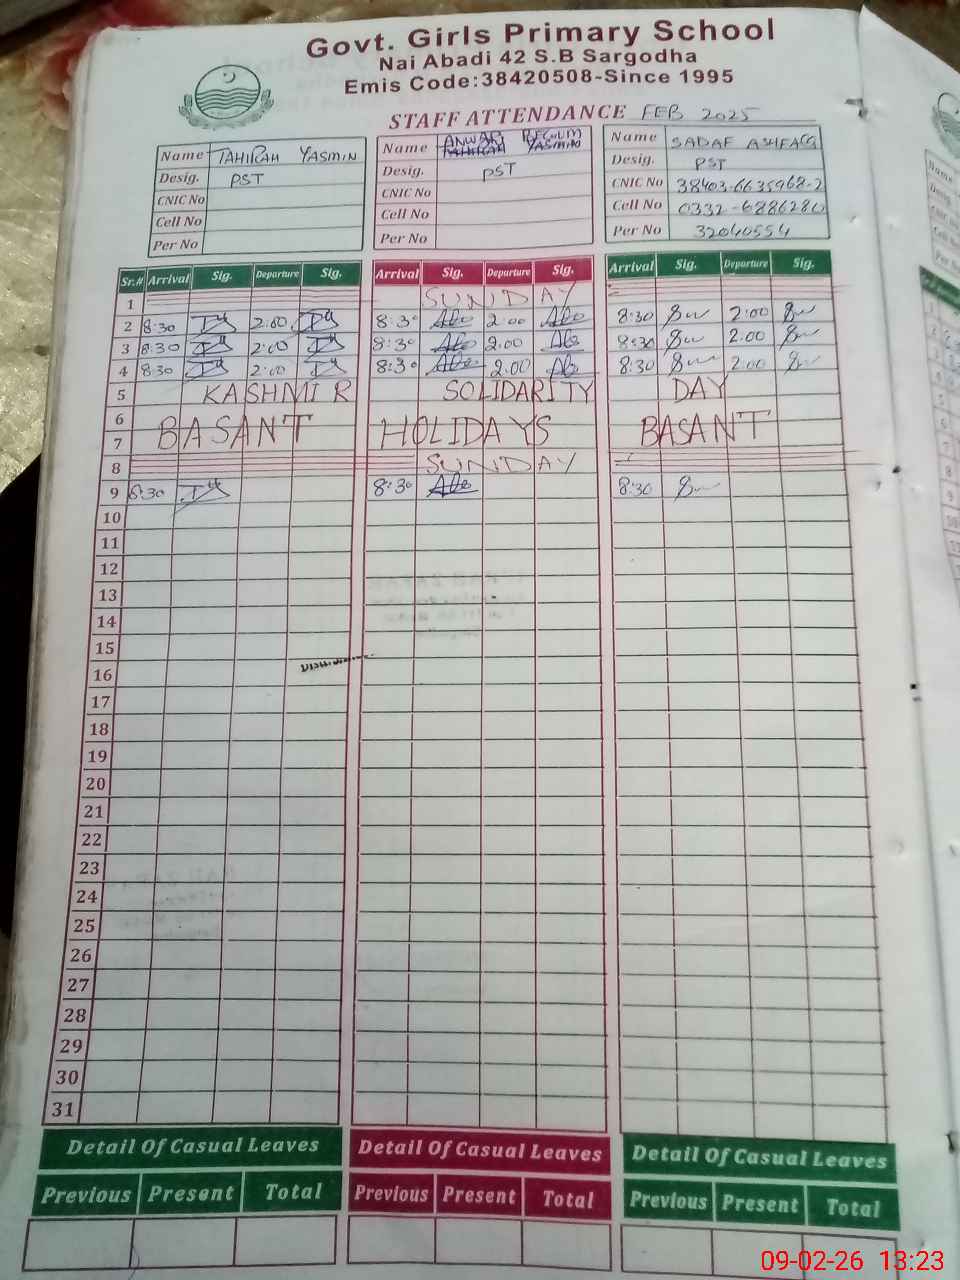 Govt. Girls Primary School
Nai Abadi 42 S.B Sargodha
Emis Code:38420508-Since 1995
STAFF ATTENDANCE FEB 2025
Name TAHIRAH YASMIN
Desig. PST
CNIC No
Cell No
Per No
Name ANWAR BEGUM
Desig. PST
CNIC No
Cell No
Per No
Name SADAF ASHFAQ
Desig. PST
CNIC No 38403-6635968-2
Cell No 0332-6886280
Per No 32040554
Sr.# Arrival Sig. Departure Sig. Arrival Sig. Departure Sig. Arrival Sig. Departure Sig.
1 SUNDAY
2 8:30 2:00 8:30 2:00 8:30 2:00
3 8:30 2:00 8:30 2:00 8:30 2:00
4 8:30 2:00 8:30 2:00 8:30 2:00
5 KASHMIR SOLIDARITY DAY
6
7 BASANT HOLIDAYS BASANT
8 SUNDAY
9 8:30 8:30 8:30
10
11
12
13
14
15
16
17
18
19
20
21
22
23
24
25
26
27
28
29
30
31
Detail Of Casual Leaves Detail Of Casual Leaves Detail Of Casual Leaves
Previous Present Total Previous Present Total Previous Present Total
09-02-26 13:23